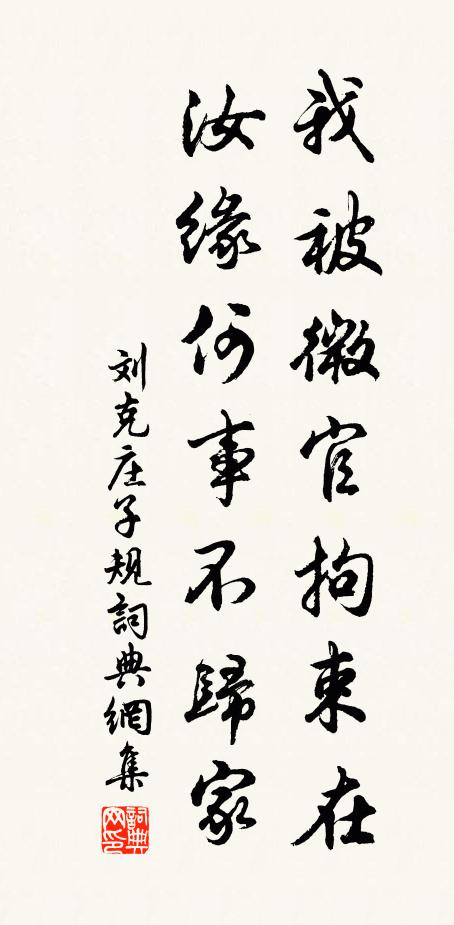 我被微官拘束在
汝緣何事不歸家
刘克庄子規詞典網集
詞典网印